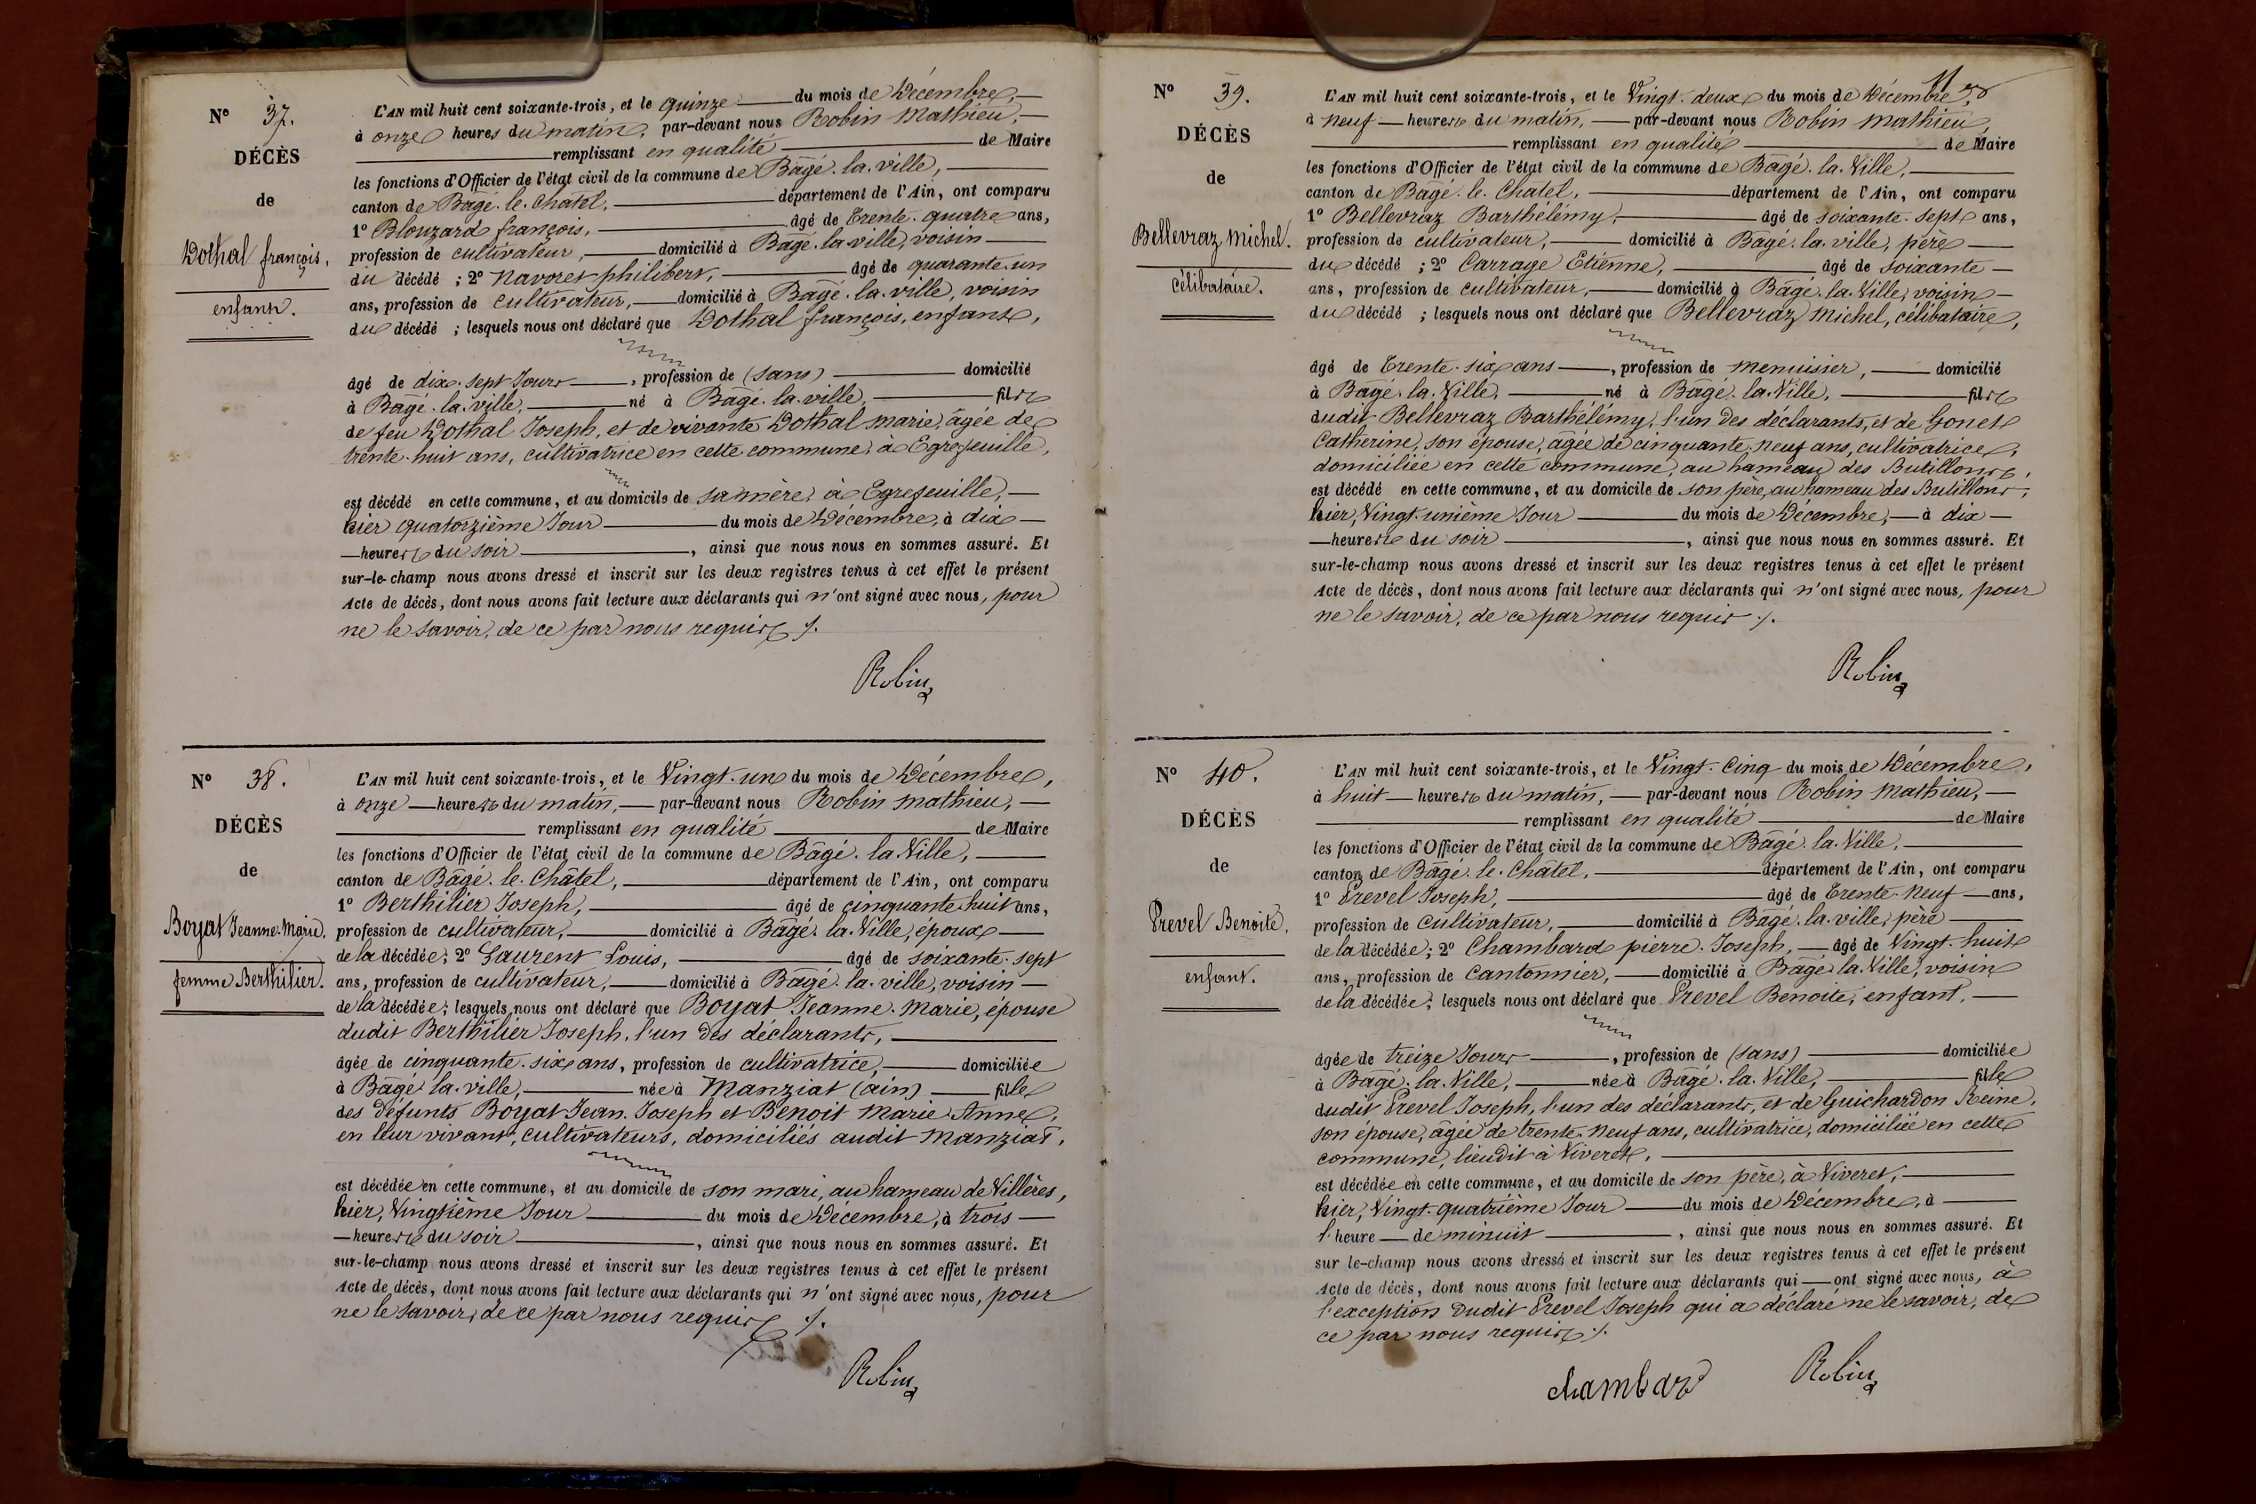 N° 37.
DÉCÈS
de
Dothal françois,
enfant.
L'AN mil huit cent soixante-trois, et le quinze du mois de Décembre,
à onze heures du matin, par-devant nous Robin Mathieu,
remplissant en qualité de Maire
les fonctions d'Officier de l'état civil de la commune de Bâgé-la-ville,
canton de Bâgé-le-Châtel, département de l'Ain, ont comparu
1° Blouzard françois, âgé de trente-quatre ans,
profession de cultivateur, domicilié à Bâgé-la-ville, voisin
du décédé ; 2° Navoret philibert, âgé de quarante-un
ans, profession de cultivateur, domicilié à Bâgé-la-ville, voisin
du décédé ; lesquels nous ont déclaré que Dothal françois, enfant,
âgé de dix-sept Jours, profession de (sans) domicilié
à Bâgé-la-ville, né à Bâgé-la-ville, fils
de feu Dothal Joseph, et de vivante Dothal marie, âgée de
trente-huit ans, cultivatrice en cette commune, à Egrefeuille,
est décédé en cette commune, et au domicile de sa mère, à Egrefeuille,
hier quatorzième Jour du mois de Décembre, à dix
heures du soir, ainsi que nous nous en sommes assuré. Et
sur-le-champ nous avons dressé et inscrit sur les deux registres tenus à cet effet le présent
Acte de décès, dont nous avons fait lecture aux déclarants qui n'ont signé avec nous, pour
ne le savoir, de ce par nous requis ./.
Robin
N° 38.
DÉCÈS
de
Boyat Jeanne-Marie,
femme Berthilier.
L'AN mil huit cent soixante-trois, et le Vingt-un du mois de Décembre,
à onze heures du matin, par-devant nous Robin Mathieu,
remplissant en qualité de Maire
les fonctions d'Officier de l'état civil de la commune de Bâgé-la-Ville,
canton de Bâgé-le-Châtel, département de l'Ain, ont comparu
1° Berthilier Joseph, âgé de cinquante-huit ans,
profession de cultivateur, domicilié à Bâgé-la-Ville, époux
de la décédée ; 2° Laurent Louis, âgé de soixante-sept
ans, profession de cultivateur, domicilié à Bâgé-la-ville, voisin
de la décédée ; lesquels nous ont déclaré que Boyat Jeanne-Marie, épouse
dudit Berthilier Joseph, l'un des déclarants,
âgée de cinquante-six ans, profession de cultivatrice, domiciliée
à Bâgé-la-ville, née à Manziat (ain) fille
des défunts Boyat Jean-Joseph et Benoit Marie-Anne,
en leur vivant, cultivateurs, domiciliés audit Manziat,
est décédée en cette commune, et au domicile de son mari, au hameau de Villères,
hier, Vingtième Jour du mois de Décembre, à trois
heures du soir, ainsi que nous nous en sommes assuré. Et
sur-le-champ nous avons dressé et inscrit sur les deux registres tenus à cet effet le présent
Acte de décès, dont nous avons fait lecture aux déclarants qui n'ont signé avec nous, pour
ne le savoir, de ce par nous requis ./.
Robin
N° 39.
DÉCÈS
de
Bellevraz Michel.
célibataire.
L'AN mil huit cent soixante-trois, et le Vingt-deux du mois de Décembre,
à neuf heures du matin, par-devant nous Robin Mathieu,
remplissant en qualité de Maire
les fonctions d'Officier de l'état civil de la commune de Bâgé-la-Ville,
canton de Bâgé-le-Châtel, département de l'Ain, ont comparu
1° Bellevraz Barthélémy, âgé de soixante-sept ans,
profession de cultivateur, domicilié à Bâgé-la-ville, père
du décédé ; 2° Carrage Etienne, âgé de soixante
ans, profession de cultivateur, domicilié à Bâgé-la-Ville, voisin
du décédé ; lesquels nous ont déclaré que Bellevraz Michel, célibataire,
âgé de trente-six ans, profession de menuisier, domicilié
à Bâgé-la-Ville, né à Bâgé-la-Ville, fils
dudit Bellevraz Barthélémy, l'un des déclarants, et de Gonet
Catherine, son épouse, âgée de cinquante-neuf ans, cultivatrice,
domiciliée en cette commune, au hameau des Butillons,
est décédé en cette commune, et au domicile de son père, au hameau des Butillons,
hier, Vingt-unième Jour du mois de Décembre, à dix
heures du soir, ainsi que nous nous en sommes assuré. Et
sur-le-champ nous avons dressé et inscrit sur les deux registres tenus à cet effet le présent
Acte de décès, dont nous avons fait lecture aux déclarants qui n'ont signé avec nous, pour
ne le savoir, de ce par nous requis ./.
Robin
N° 40.
DÉCÈS
de
Prevel Benoite,
enfant.
L'AN mil huit cent soixante-trois, et le Vingt-Cinq du mois de Décembre,
à huit heures du matin, par-devant nous Robin Mathieu,
remplissant en qualité de Maire
les fonctions d'Officier de l'état civil de la commune de Bâgé-la-Ville,
canton de Bâgé-le-Châtel, département de l'Ain, ont comparu
1° Prevel Joseph, âgé de trente-neuf ans,
profession de cultivateur, domicilié à Bâgé-la-ville, père
de la décédée ; 2° Chambard pierre-Joseph, âgé de Vingt-huit
ans, profession de Cantonnier, domicilié à Bâgé-la-Ville, voisin
de la décédée ; lesquels nous ont déclaré que Prevel Benoite, enfant,
âgée de treize Jours, profession de (sans) domiciliée
à Bâgé-la-Ville, née à Bâgé-la-Ville, fille
dudit Prevel Joseph, l'un des déclarants, et de Guichardon Reine,
son épouse, âgée de trente-neuf ans, cultivatrice, domiciliée en cette
commune, lieudit à Viveret,
est décédée en cette commune, et au domicile de son père, à Viveret,
hier, Vingt-quatrième Jour du mois de Décembre, à
l'heure de minuit, ainsi que nous nous en sommes assuré. Et
sur le-champ nous avons dressé et inscrit sur les deux registres tenus à cet effet le présent
Acte de décès, dont nous avons fait lecture aux déclarants qui ont signé avec nous, à
l'exception dudit Prevel Joseph qui a déclaré ne le savoir, de
ce par nous requis ./.
chambard Robin